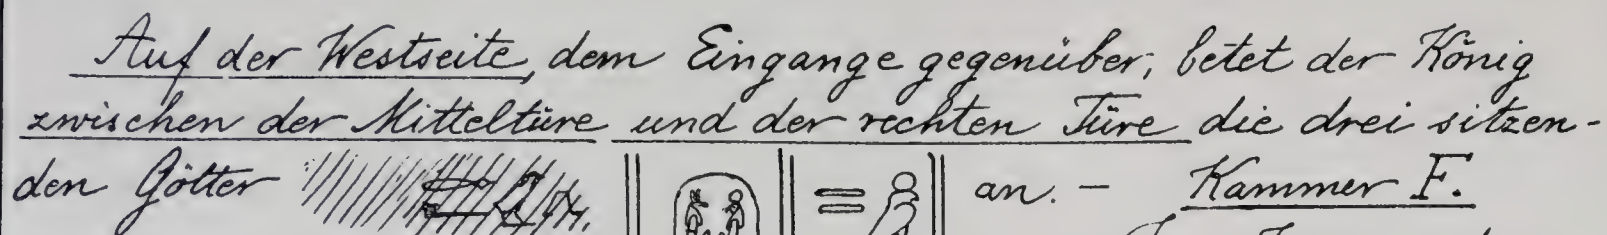 Auf der Westseite, dem Eingange gegenüber, betet der König
zwischen der Mitteltüre und der rechten Türe die drei sitzen-
den Götter an. – Kammer F.